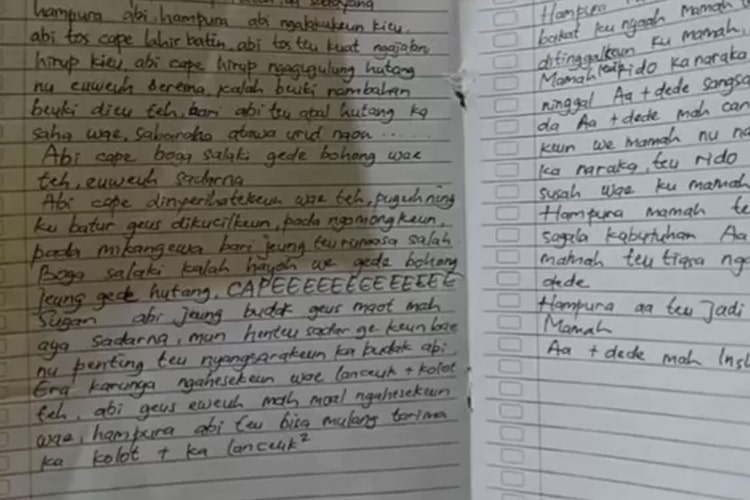 hampura abi, hampura abi ngalakukeun kieu,
abi tos cape lahir batin, abi tos teu kuat ngajalani
hirup kieu, abi cape hirup ngagugulung hutang
nu euweuh berena, kalah beuki nambahan
beuki dieu teh, bari abi teu apal hutang ka
saha wae, sabaraha atawa urid naon .....
Abi cape boga salaki gede bohong wae
teh, euweuh sadarna
Abi cape dinyerihatekeun wae teh, puguh ning
ku batur geus dikucilkeun, pada ngomongkeun,
pada mikangewa bari jeung teu rumasa salah.
Boga salaki kalah hayoh we gede bohong
jeung gede hutang, CAPEEEEEEEEEEEEE
Sugan abi jeung budak geus maot mah
aya sadarna, mun henteu sadar ge keun bae
nu penting teu nyangsarakeun ka budak abi.
Era karunya ngahesekeun wae lanceuk + kolot
teh, abi geus euweuh mah moal ngahesekeun
wae, hampura abi teu bisa mulang tarima
ka kolot + ka lanceuk²
Hampura
bakat ku nyaah mamah
ditinggalkeun ku mamah.
Mamah rido ka naraka
ninggal Aa + dede sangsa
da Aa + dede mah can
keun we mamah nu na
ka naraka, teu rido
susah wae ku mamah
Hampura mamah te
sagala kabutuhan Aa
mamah teu tiasa nga
dede
Hampura aa teu jadi
Mamah
Aa + dede mah Insl